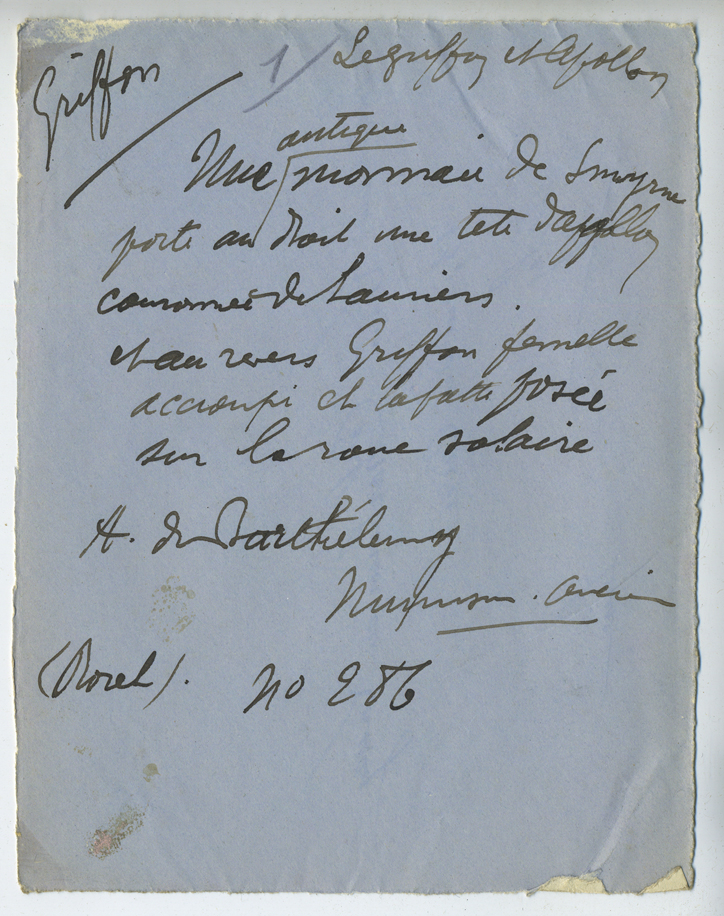 Griffon
1/
Le griffon et Apollon
antique
Une monnaie de Smyrne
porte au droit une tete d'appollon
couronnée de Lauriers.
et au revers Griffon femelle
accroupi et la patte posée
sur la roue solaire
A. de Barthélemy
Numism. Ancien
(Roret). no 286